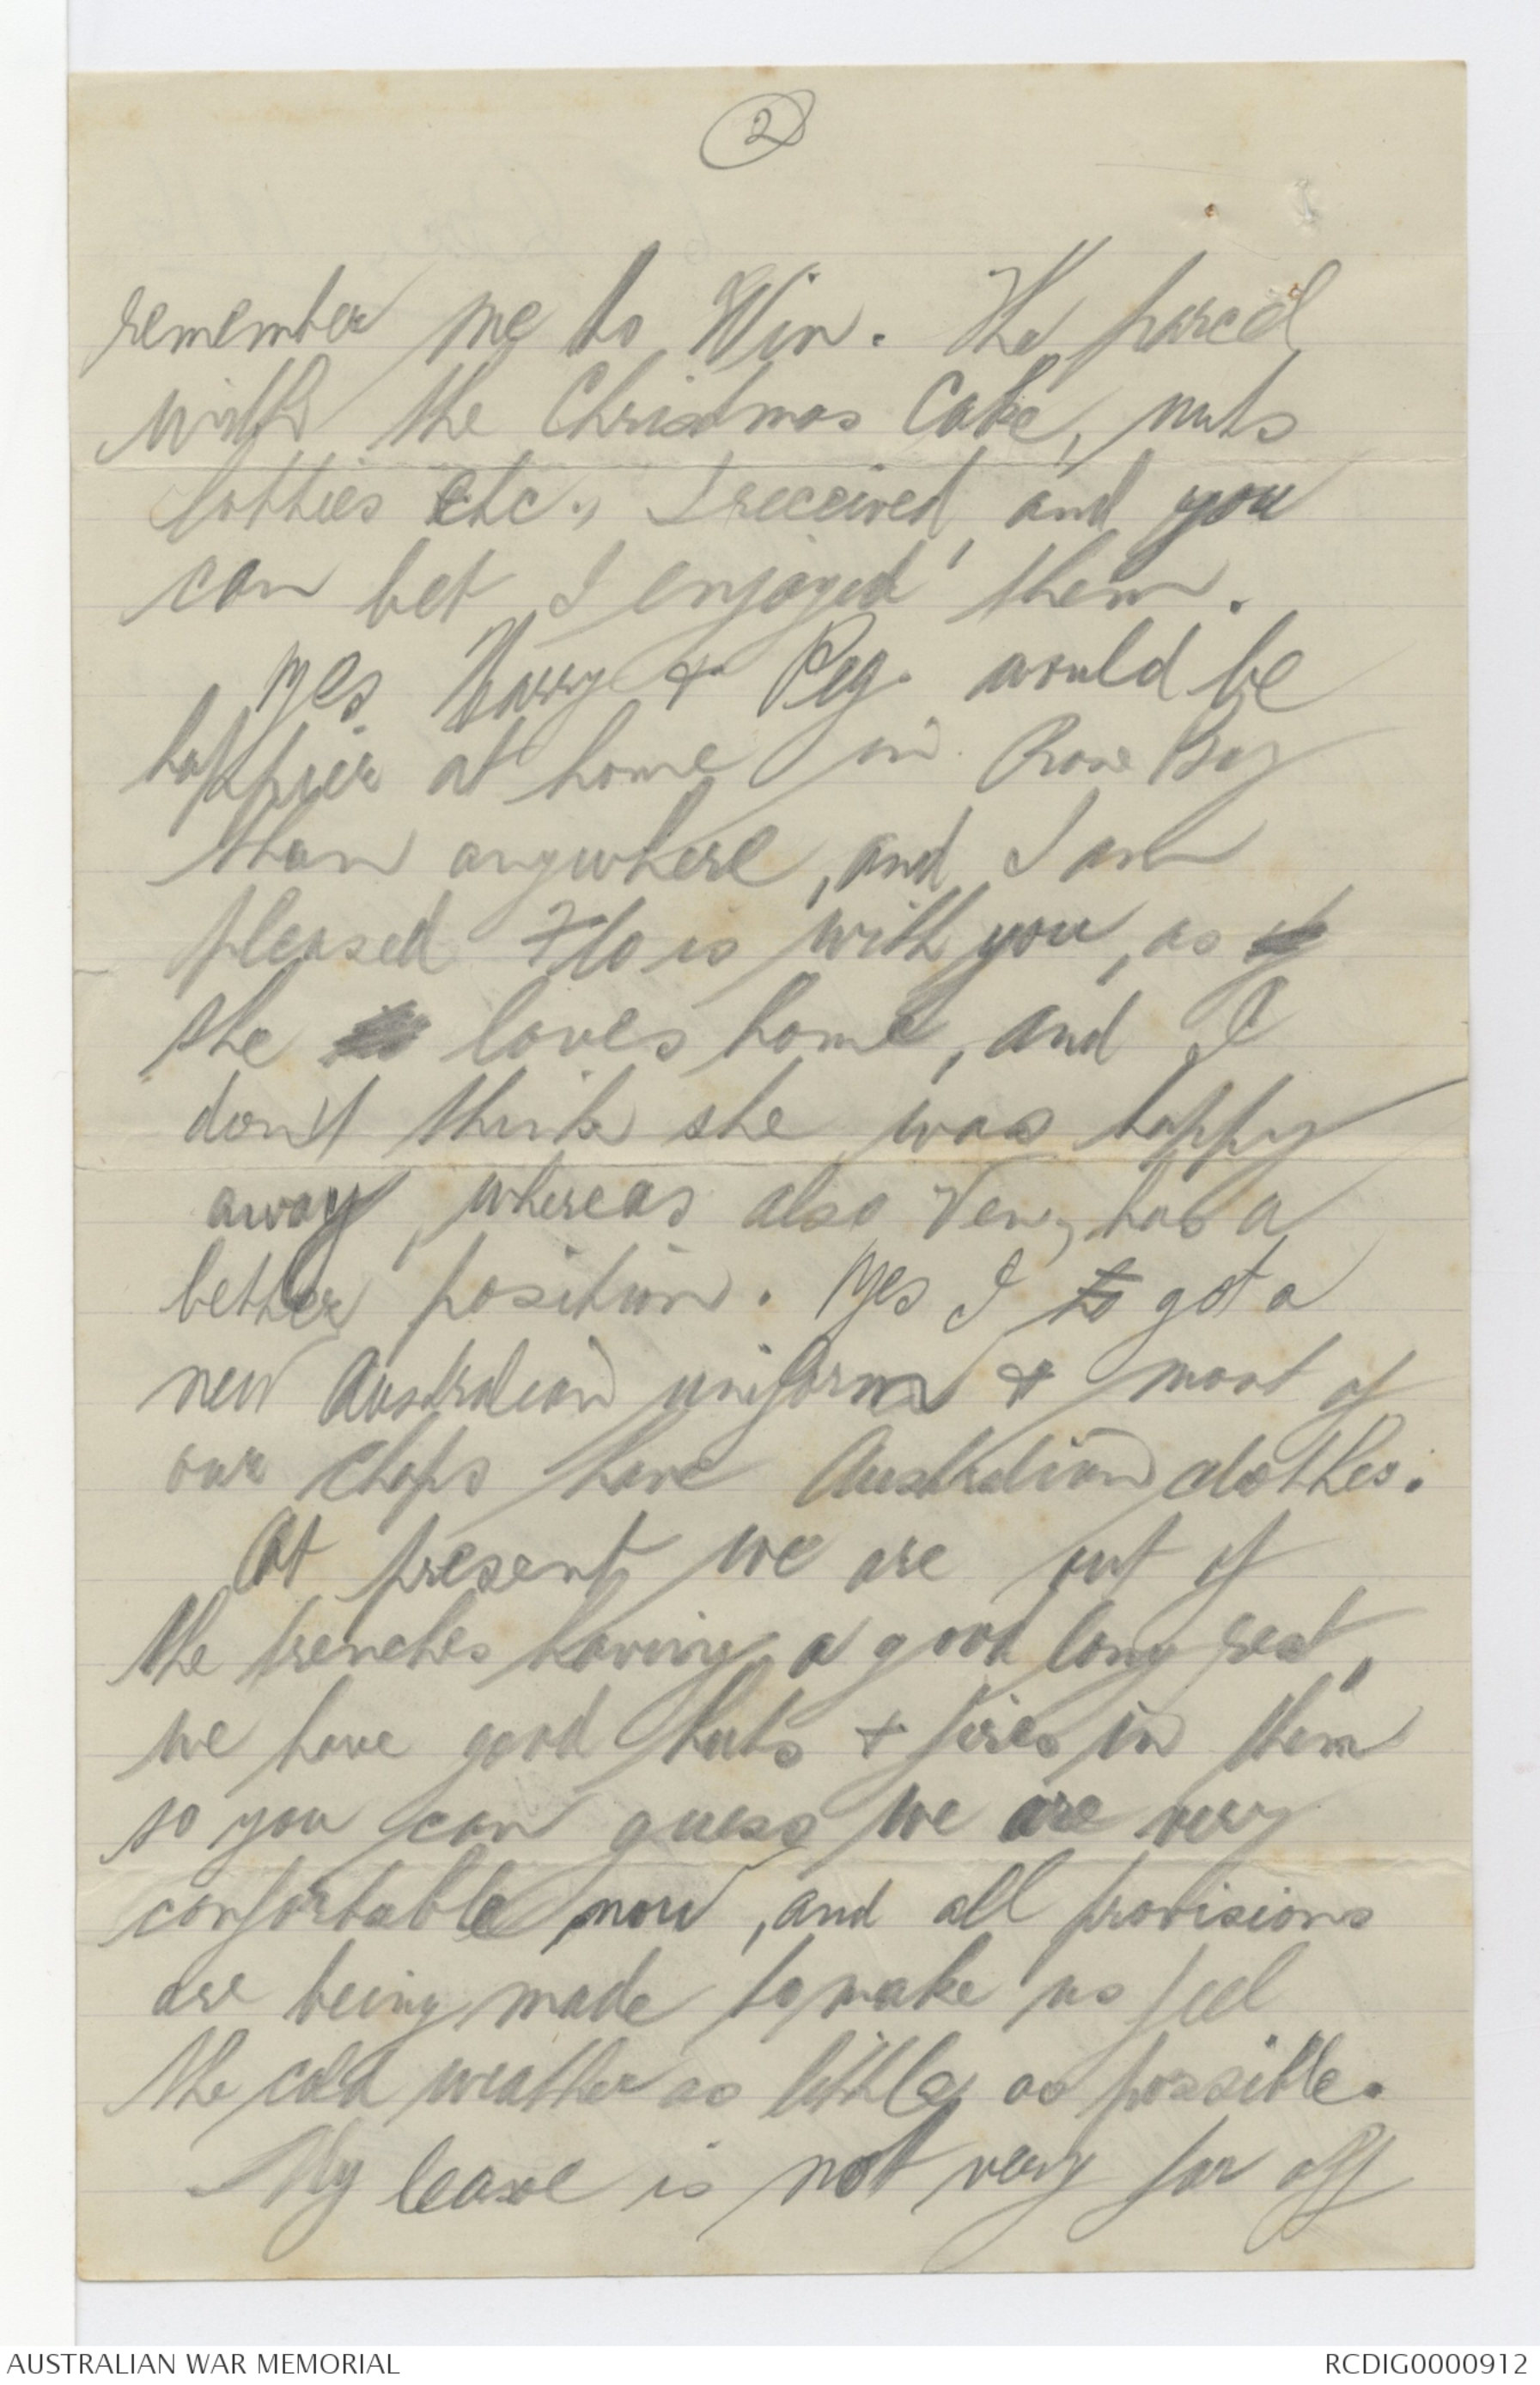 2
remember me to Win. The parcel
with the Christmas Cake, nuts
lollies etc., I received, and you
can bet I enjoyed them.
Yes Harry + Peg. would be
happier at home in Rose Bay
than anywhere, and I am
pleased Flo is with you, as
she loves home, and I
don't think she was happy
away, whereas also has a
better position. Yes I to got a
new Australian uniform + most of
our chaps have Australian clothes.
At present we are out of
the trenches having a good long rest,
we have good huts + fires in them
so you can guess we are very
confortable now, and all provisions
are being made to make us feel
the cold weather as little as possible.
My leave is not very far off
AUSTRALIAN WAR MEMORIAL
RCDIG0000912